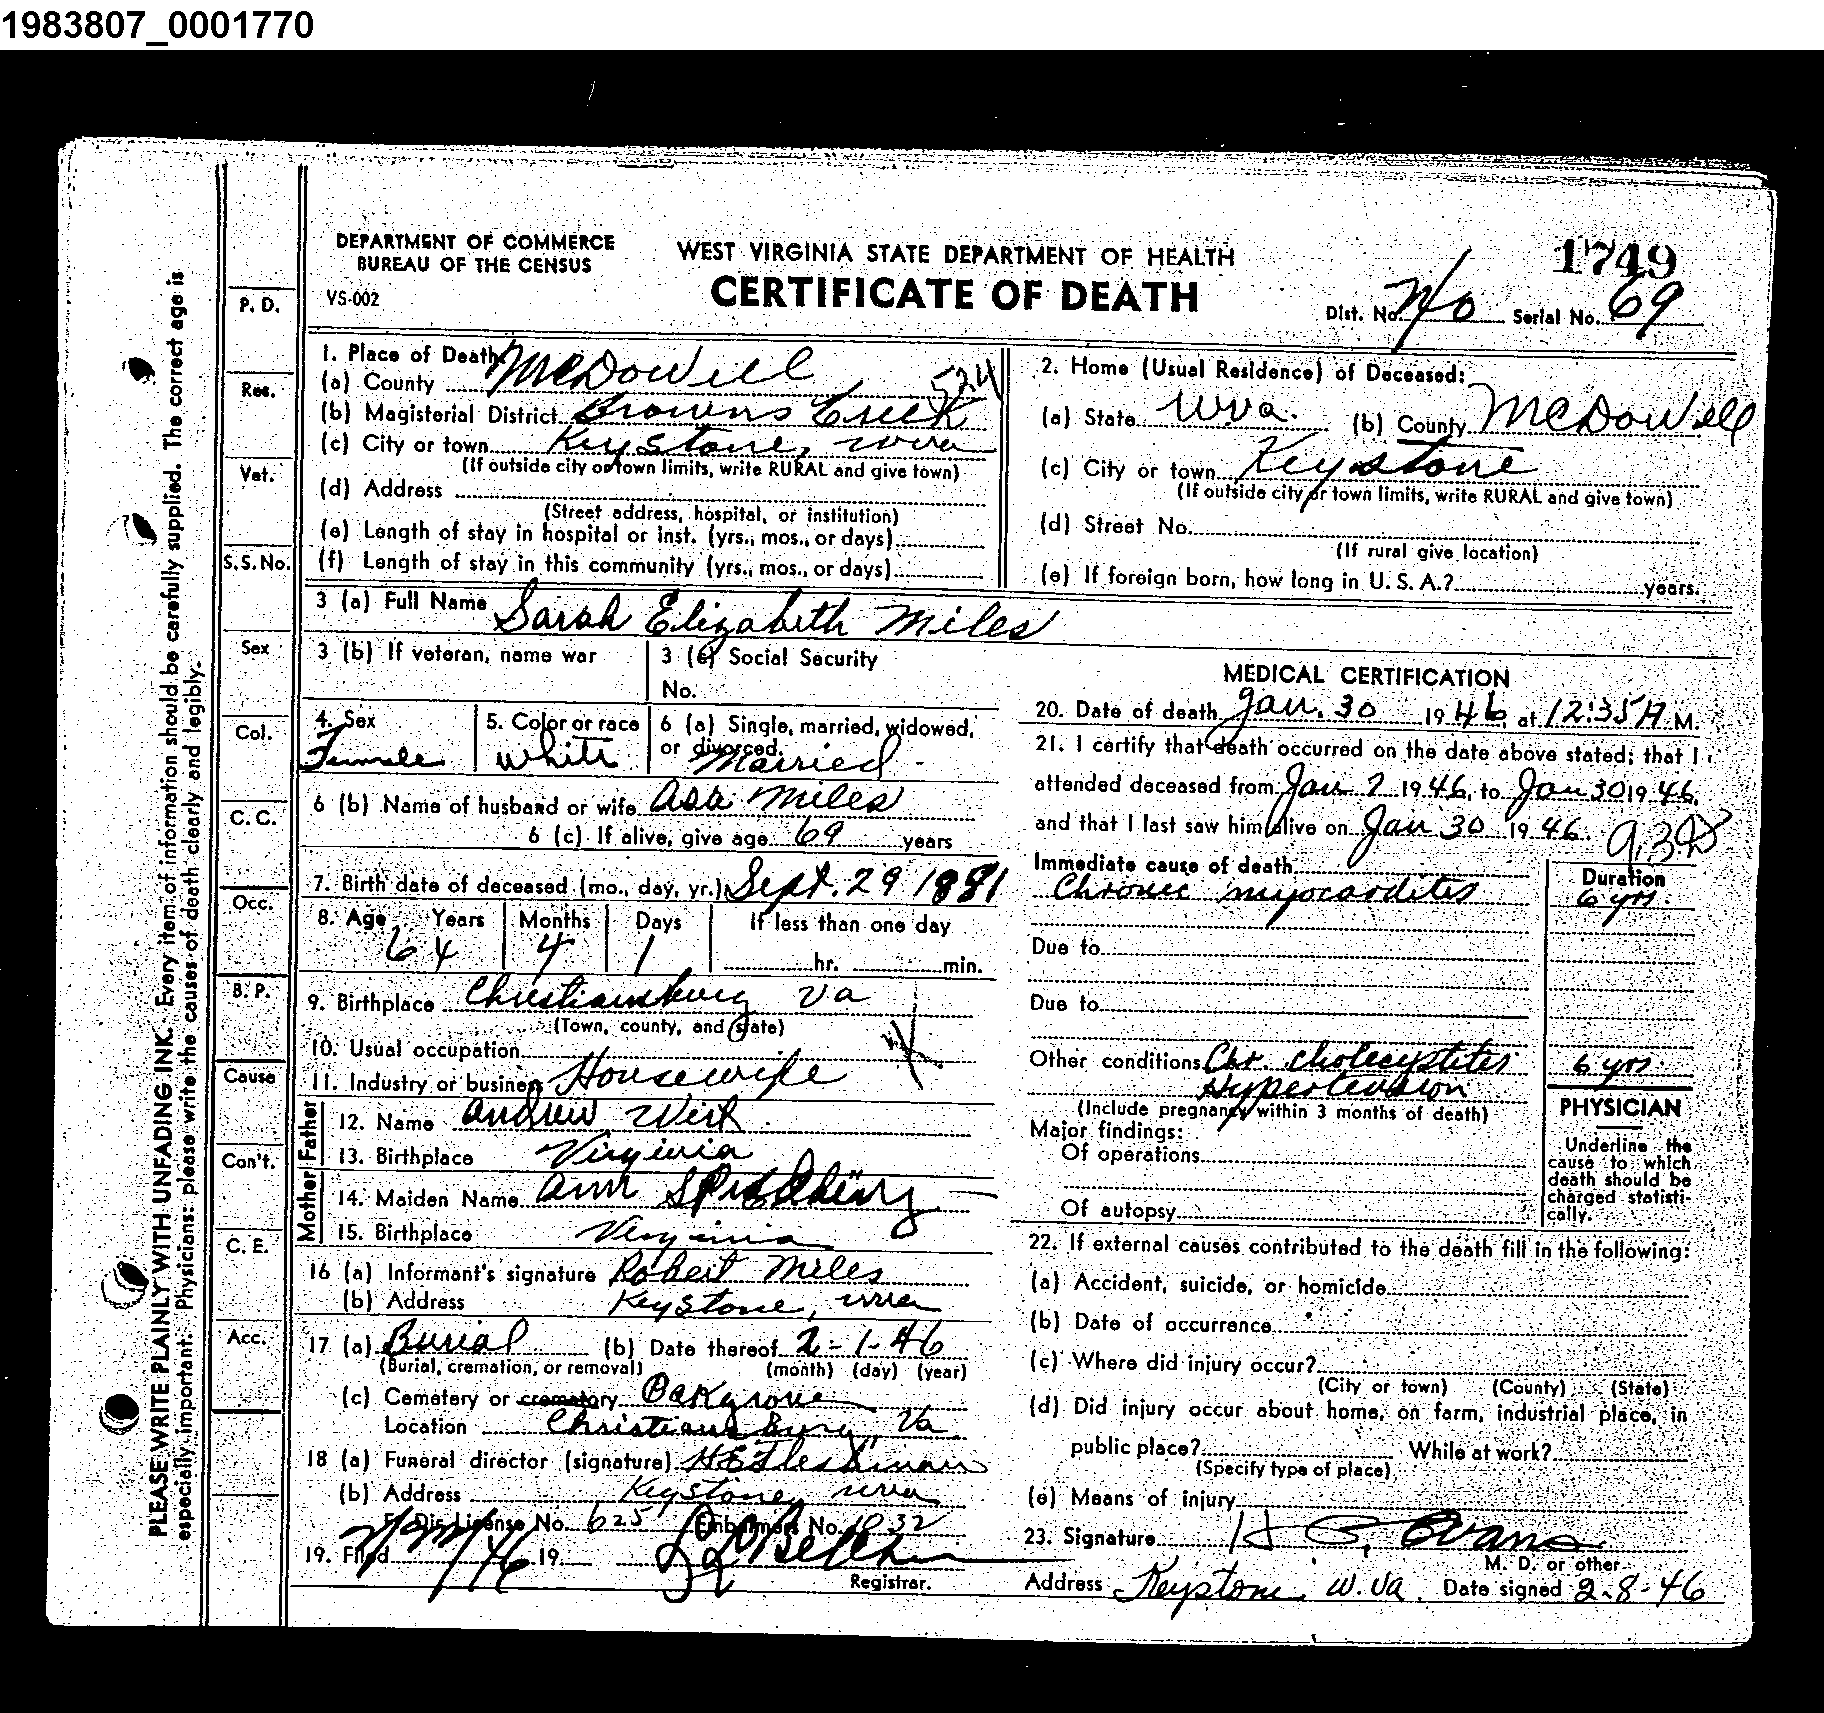 1983807_0001770
DEPARTMENT OF COMMERCE
BUREAU OF THE CENSUS
VS-002
WEST VIRGINIA STATE DEPARTMENT OF HEALTH
CERTIFICATE OF DEATH
1749
Dist. No. Serial No. 69
PLEASE WRITE PLAINLY WITH UNFADING INK. Every item of information should be carefully supplied. The correct age is
especially important. Physicians: please write the causes of death clearly and legibly.
P. D.
Res.
Vet.
S. S. No.
Sex
Col.
C. C.
Occ.
B. P.
Cause
Con't.
C. E.
Acc.
1. Place of Death
(a) County McDowell
524
(b) Magisterial District Browns Creek
(c) City or town Keystone, wva
(If outside city or town limits, write RURAL and give town)
(d) Address
(Street address, hospital, or institution)
(e) Length of stay in hospital or inst. (yrs., mos., or days)
(f) Length of stay in this community (yrs., mos., or days)
2. Home (Usual Residence) of Deceased:
(a) State Wva. (b) County McDowell
(c) City or town Keystone
(If outside city or town limits, write RURAL and give town)
(d) Street No.
(If rural give location)
(e) If foreign born, how long in U. S. A.? years.
3 (a) Full Name Sarah Elizabeth Miles
3 (b) If veteran, name war
3 (c) Social Security
No.
4. Sex
Female
5. Color or race
White
6 (a) Single, married, widowed,
or divorced.
Married
6 (b) Name of husband or wife Asa Miles
6 (c) If alive, give age 69 years
7. Birth date of deceased (mo., day, yr.) Sept. 29 1881
8. Age Years Months Days If less than one day
64 4 1 hr. min.
9. Birthplace Christiansburg Va
(Town, county, and state)
10. Usual occupation
11. Industry or business Housewife
Father
12. Name Andrew Weik
13. Birthplace Virginia
Mother
14. Maiden Name Ann
15. Birthplace Virginia
16 (a) Informant's signature Robert Miles
(b) Address Keystone, wva
17 (a) Burial (b) Date thereof 2-1-46
(Burial, cremation, or removal) (month) (day) (year)
(c) Cemetery or crematory Oakgrove
Location Christiansburg, Va
18 (a) Funeral director (signature)
(b) Address Keystone, wva
F. Dir. License No. 625 Embalmers No. 1032
19. Filed 19
Registrar.
MEDICAL CERTIFICATION
20. Date of death Jan. 30 1946, at 12:35 A M.
21. I certify that death occurred on the date above stated; that I
attended deceased from Jan 2 1946, to Jan 30 1946,
and that I last saw him alive on Jan 30 1946.
Immediate cause of death Duration
Chronic myocarditis 6 yrs.
Due to
Due to
Other conditions Chr. cholecystites 6 yrs.
Hypertension
(Include pregnancy within 3 months of death)
Major findings:
Of operations
Of autopsy
PHYSICIAN
Underline the
cause to which
death should be
charged statisti-
cally.
22. If external causes contributed to the death fill in the following:
(a) Accident, suicide, or homicide
(b) Date of occurrence
(c) Where did injury occur?
(City or town) (County) (State)
(d) Did injury occur about home, on farm, industrial place, in
public place? While at work?
(Specify type of place)
(e) Means of injury
23. Signature H G. Evans
M. D. or other
Address Keystone, W. Va. Date signed 2-8-46